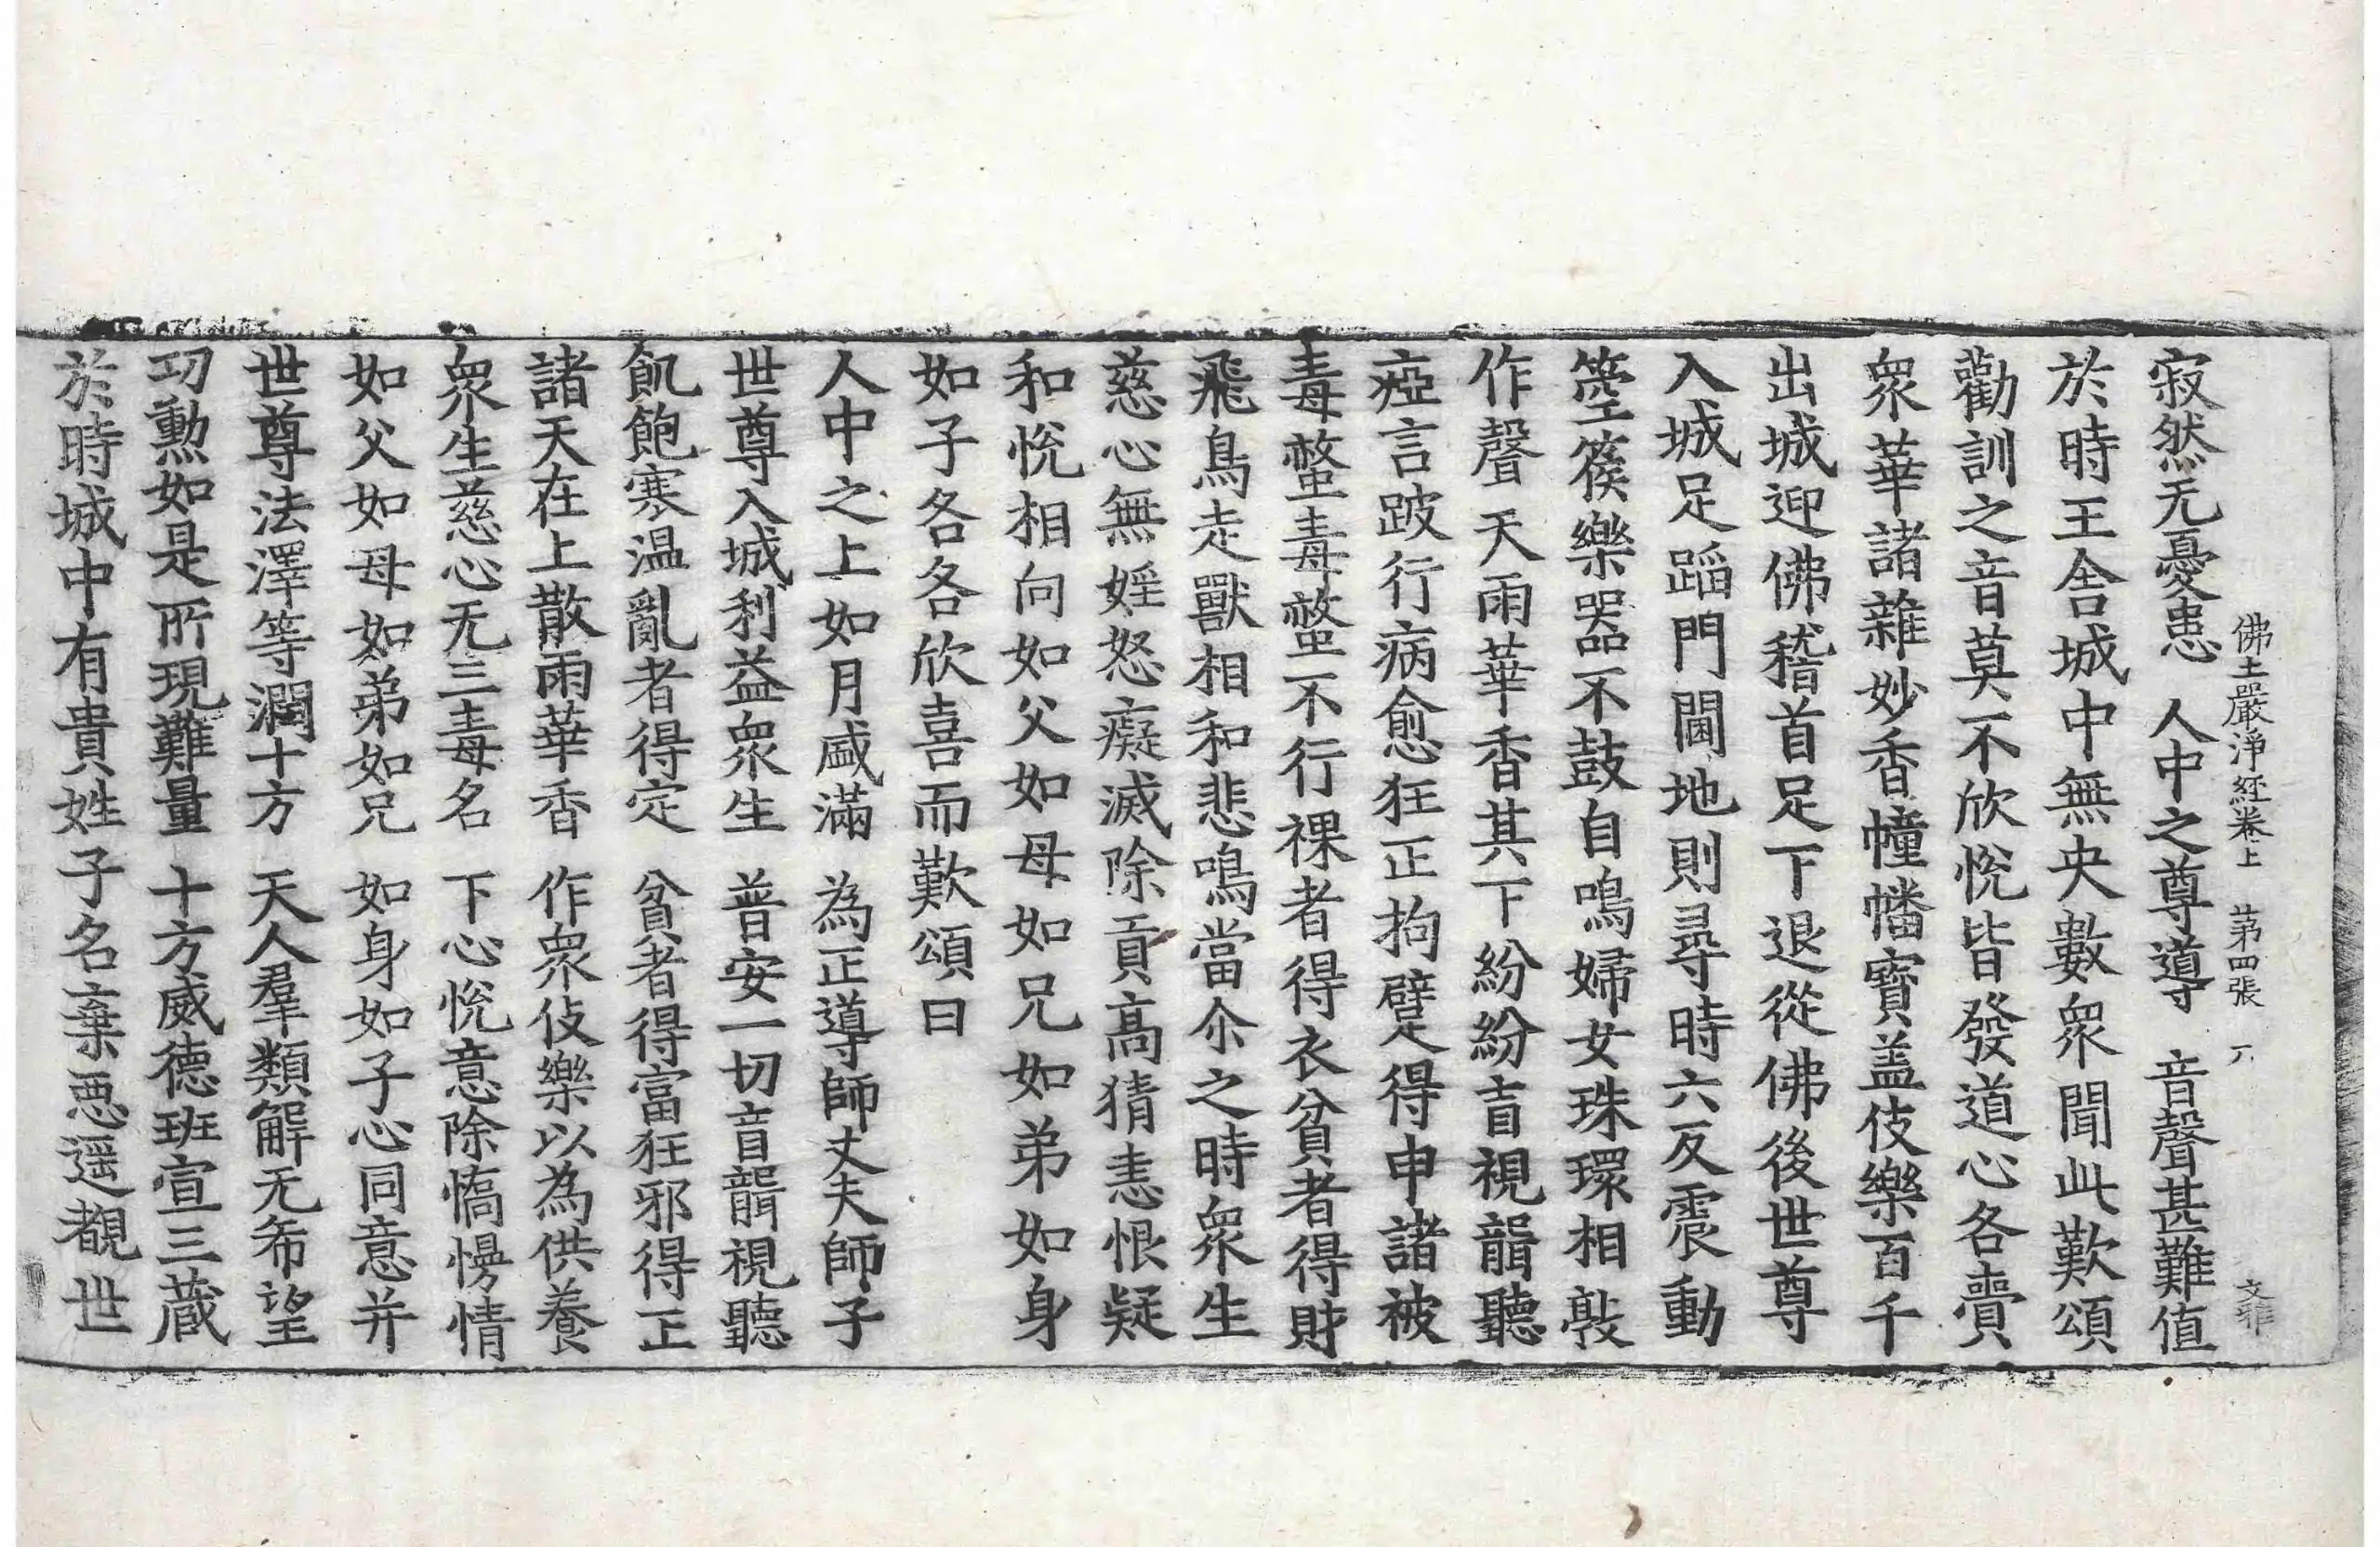 佛土嚴淨経卷上　第四張　𠆤　文雅
寂然无憂患　人中之尊導　音聲甚難值
於時王舍城中無央數衆聞此歎頌
勸訓之音莫不欣悅皆發道心各賷
衆華諸雜妙香幢幡寶盖伎樂百千
出城迎佛稽首足下退從佛後世尊
入城足蹈門閫地則尋時六反震動
箜篌樂器不鼓自鳴婦女珠環相敲
作聲天雨華香其下紛紛盲視聾聽
瘂言跛行病愈狂正拘躄得申諸被
毒螫毒螫不行裸者得衣貧者得財
飛鳥走獸相和悲鳴當尒之時衆生
慈心無婬怒癡滅除貢高猜恚恨疑
和悅相向如父如母如兄如弟如身
如子各各欣喜而歎頌曰
人中之上如月盛滿　為正導師丈夫師子
世尊入城利益衆生　普安一切盲聾視聽
飢飽寒温亂者得定　貧者得富狂邪得正
諸天在上散雨華香　作衆伎樂以為供養
衆生慈心无三毒名　下心悅意除憍慢情
如父如母如弟如兄　如身如子心同意并
世尊法澤等潤十方　天人羣類解无希望
功勲如是所現難量　十方威德班宣三藏
於時城中有貴姓子名棄惡遥覩世